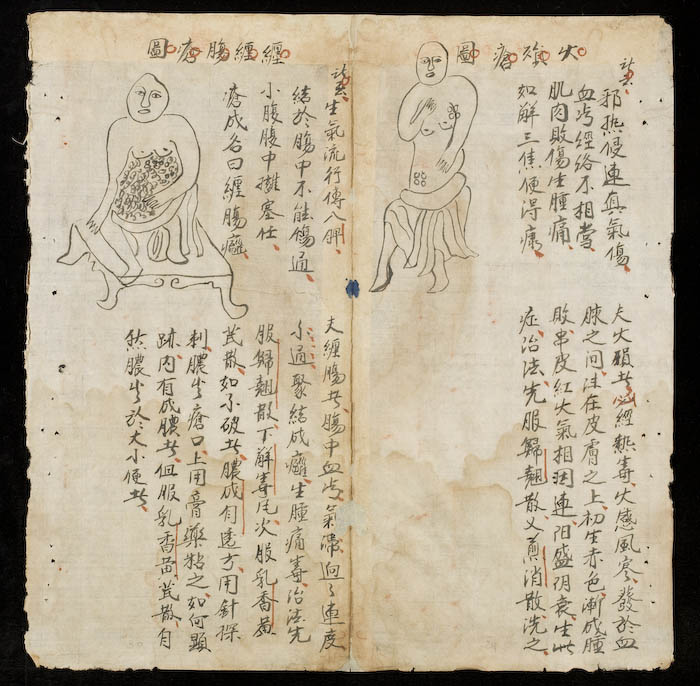 火瘡圖
詩曰
邪热侵連真氣傷
血与經絡不相當
肌肉敗傷生腫痛
如解三焦便得康
夫火者心經熱毒火感風寒發於血
脉之间注在皮膚之上初生赤色漸成腫
敗串皮紅火氣相因連阳盛阴衰生此
症治法先服歸翹散又煎消散洗之
纏纏腸瘡圖
詩曰
生氣流行傳八
結於腸中不能傷通
小腹腹中擁塞住
瘡成名曰纏腸癰
夫纏腸者腸中血与氣滞迴々連度
不通聚結成癰生腫痛毒治法先
服歸翹散下解毒次服乳香黄
芪散如不破者膿成自透方用針探
刺膿出瘡口上用膏藥粘之如何顕
跡内有成膿者但服乳香黄芪散自
然膿出於大小便者